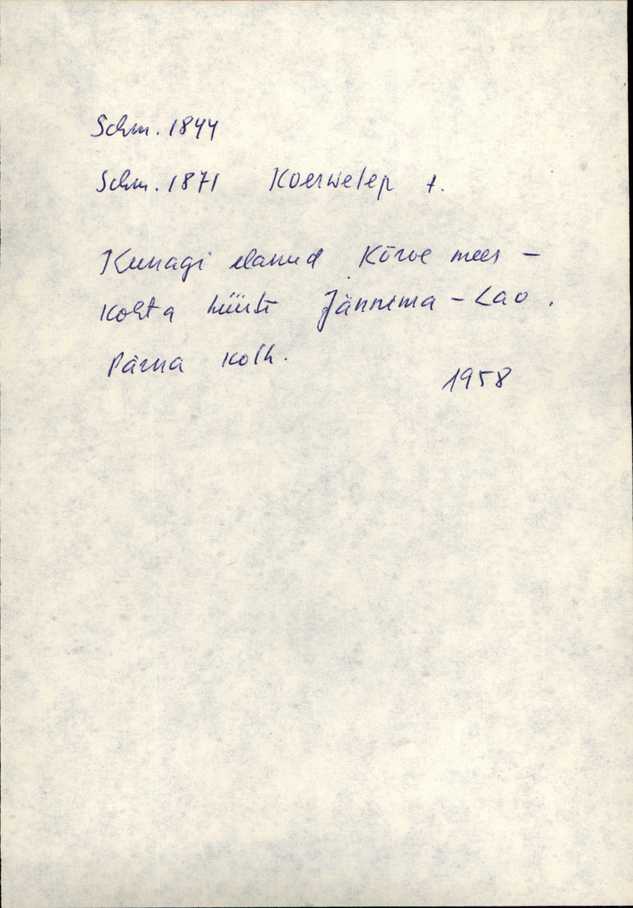 Schm. 1844
Schm. 1871 Koerwelep t.
Kunagi elanud Kõrve mees –
kohta hüüti Jännema – Lao.
Pärna kolh.
1958